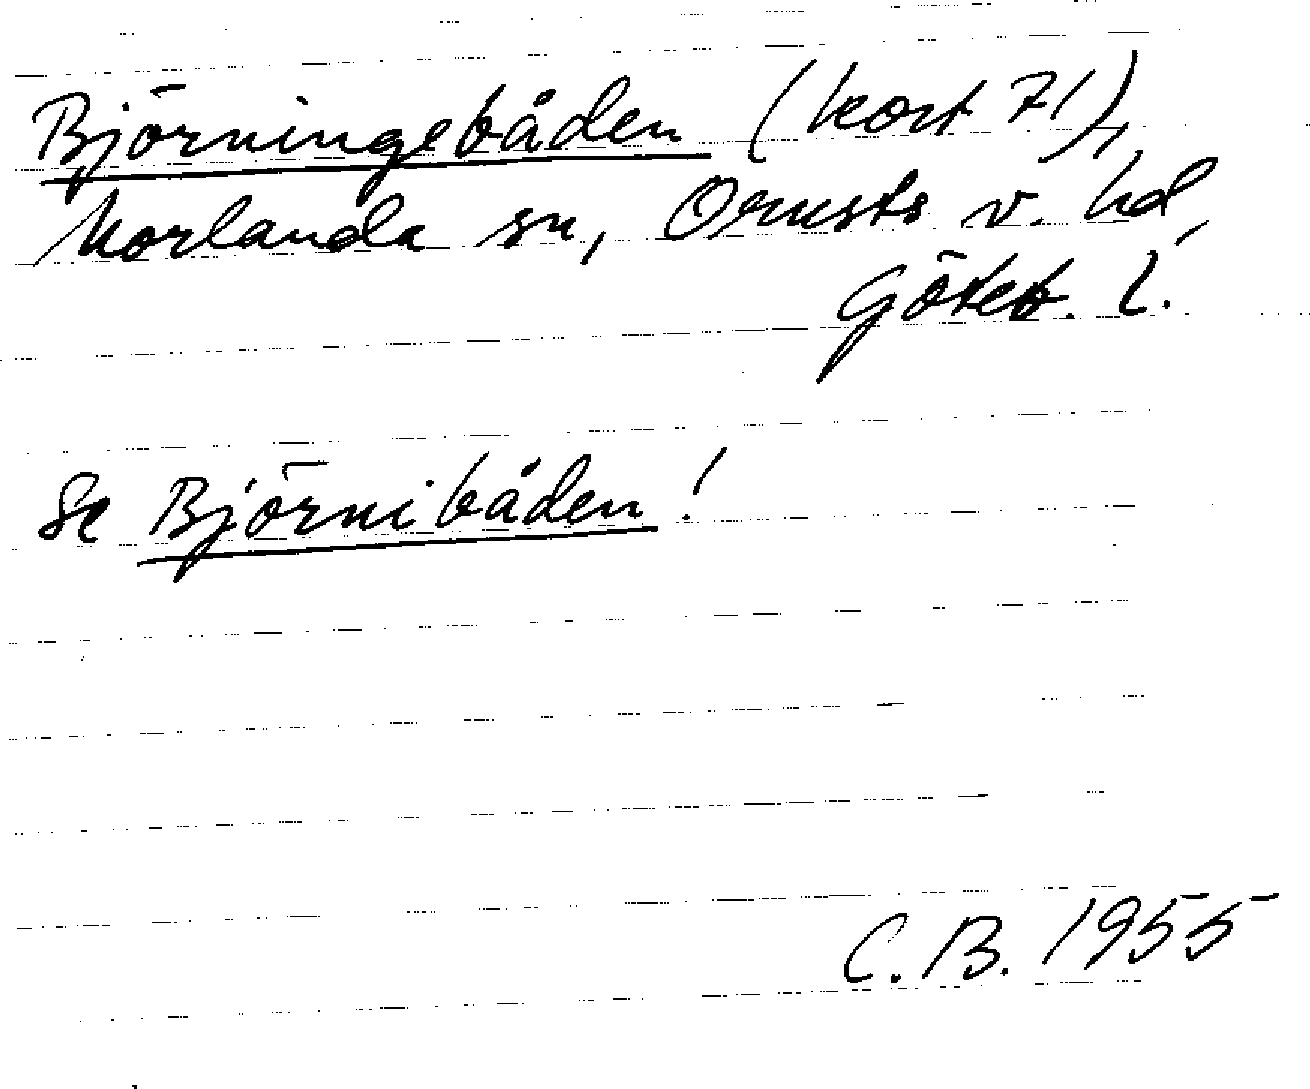 Björningebåden (kort 71),
Morlanda sn, Orusts v. hd,
Göteb. l.
Se Björnibåden!
C.B. 1955